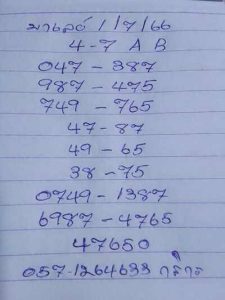 มาเลย์ 1/7/66
4-7 A B
047-387
987-475
749-765
47-87
49-65
38-75
0749-1387
6987-4765
47650
057-1264633